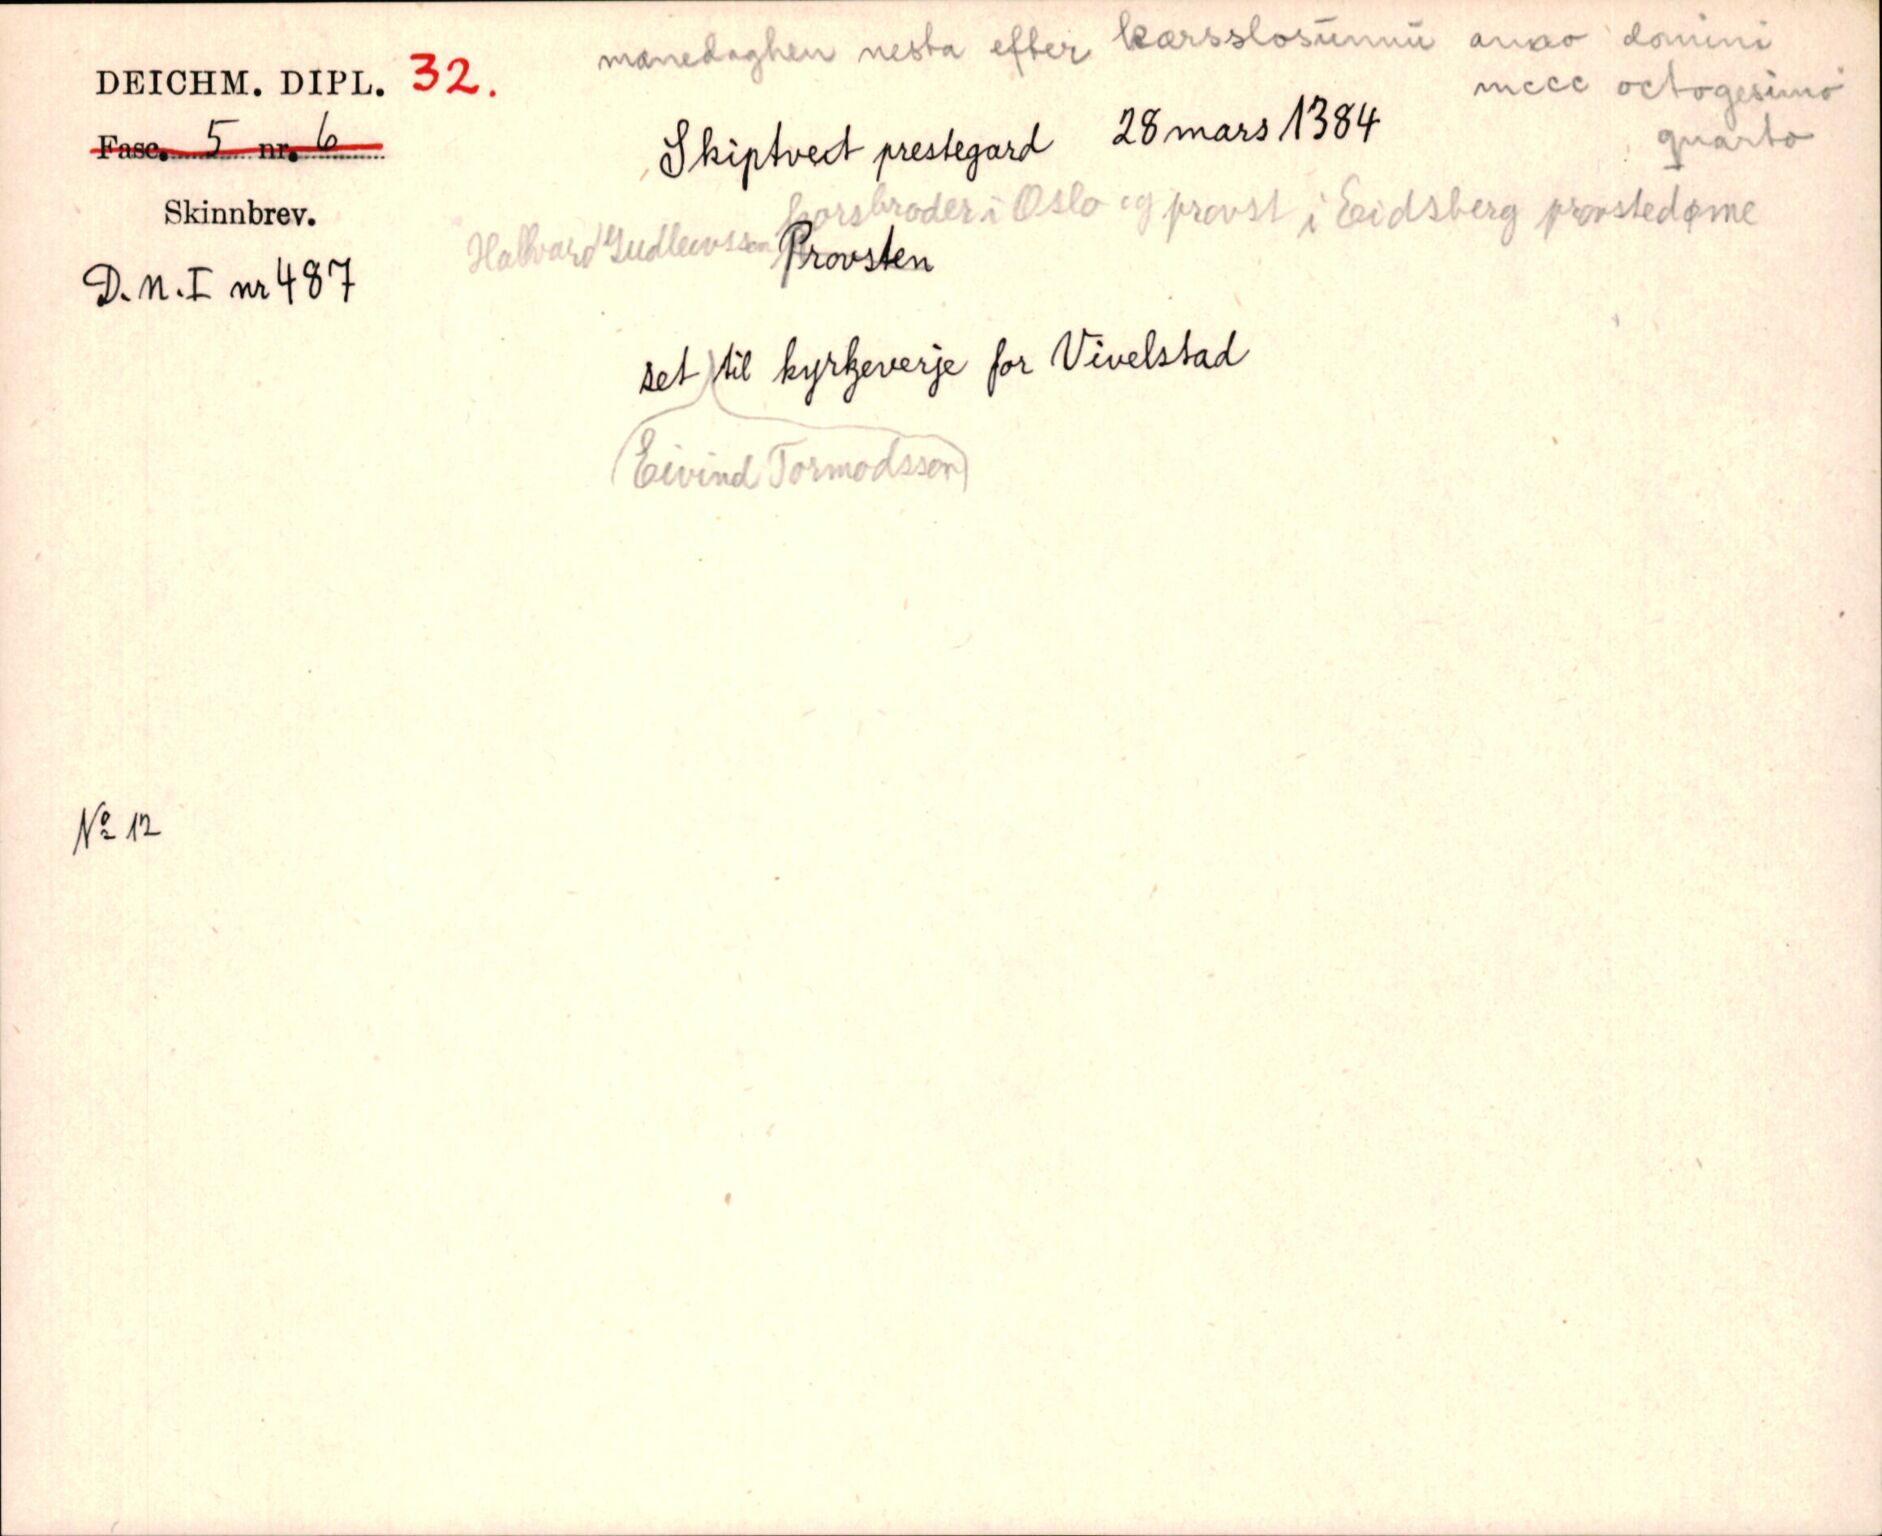 manedaghen nesta efter karsslosunnu anno domini
mccc octogesimo
quarto
DEICHM. DIPL. 32.
Fasc. 5 nr. 6
Skiptvet prestegard 28 mars 1384
Skinnbrev.
korsbroder i Oslo og provst i Eidsberg provstedøme
Hallvard Gudleivsson Provsten
D.N.I nr 487
set til kyrkeverje for Vivelstad
(Eivind Tormodsson)
No 12